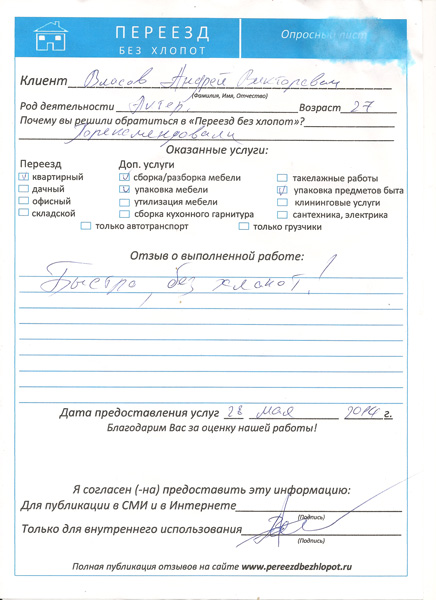 ПЕРЕЕЗД
БЕЗ ХЛОПОТ
Опросный лист
Клиент Власов Андрей Викторович
(Фамилия, Имя, Отчество)
Род деятельности Актер. Возраст 27
Почему вы решили обратиться в «Переезд без хлопот»?
Порекомендовали
Оказанные услуги:
Переезд Доп. услуги
квартирный сборка/разборка мебели такелажные работы
дачный упаковка мебели упаковка предметов быта
офисный утилизация мебели клининговые услуги
складской сборка кухонного гарнитура сантехника, электрика
только автотранспорт только грузчики
Отзыв о выполненной работе:
Быстро, без хлопот!
Дата предоставления услуг 28 мая 2014 г.
Благодарим Вас за оценку нашей работы!
Я согласен (-на) предоставить эту информацию:
Для публикации в СМИ и в Интернете
(Подпись)
Только для внутреннего использования
(Подпись)
Полная публикация отзывов на сайте www.pereezdbezhlopot.ru